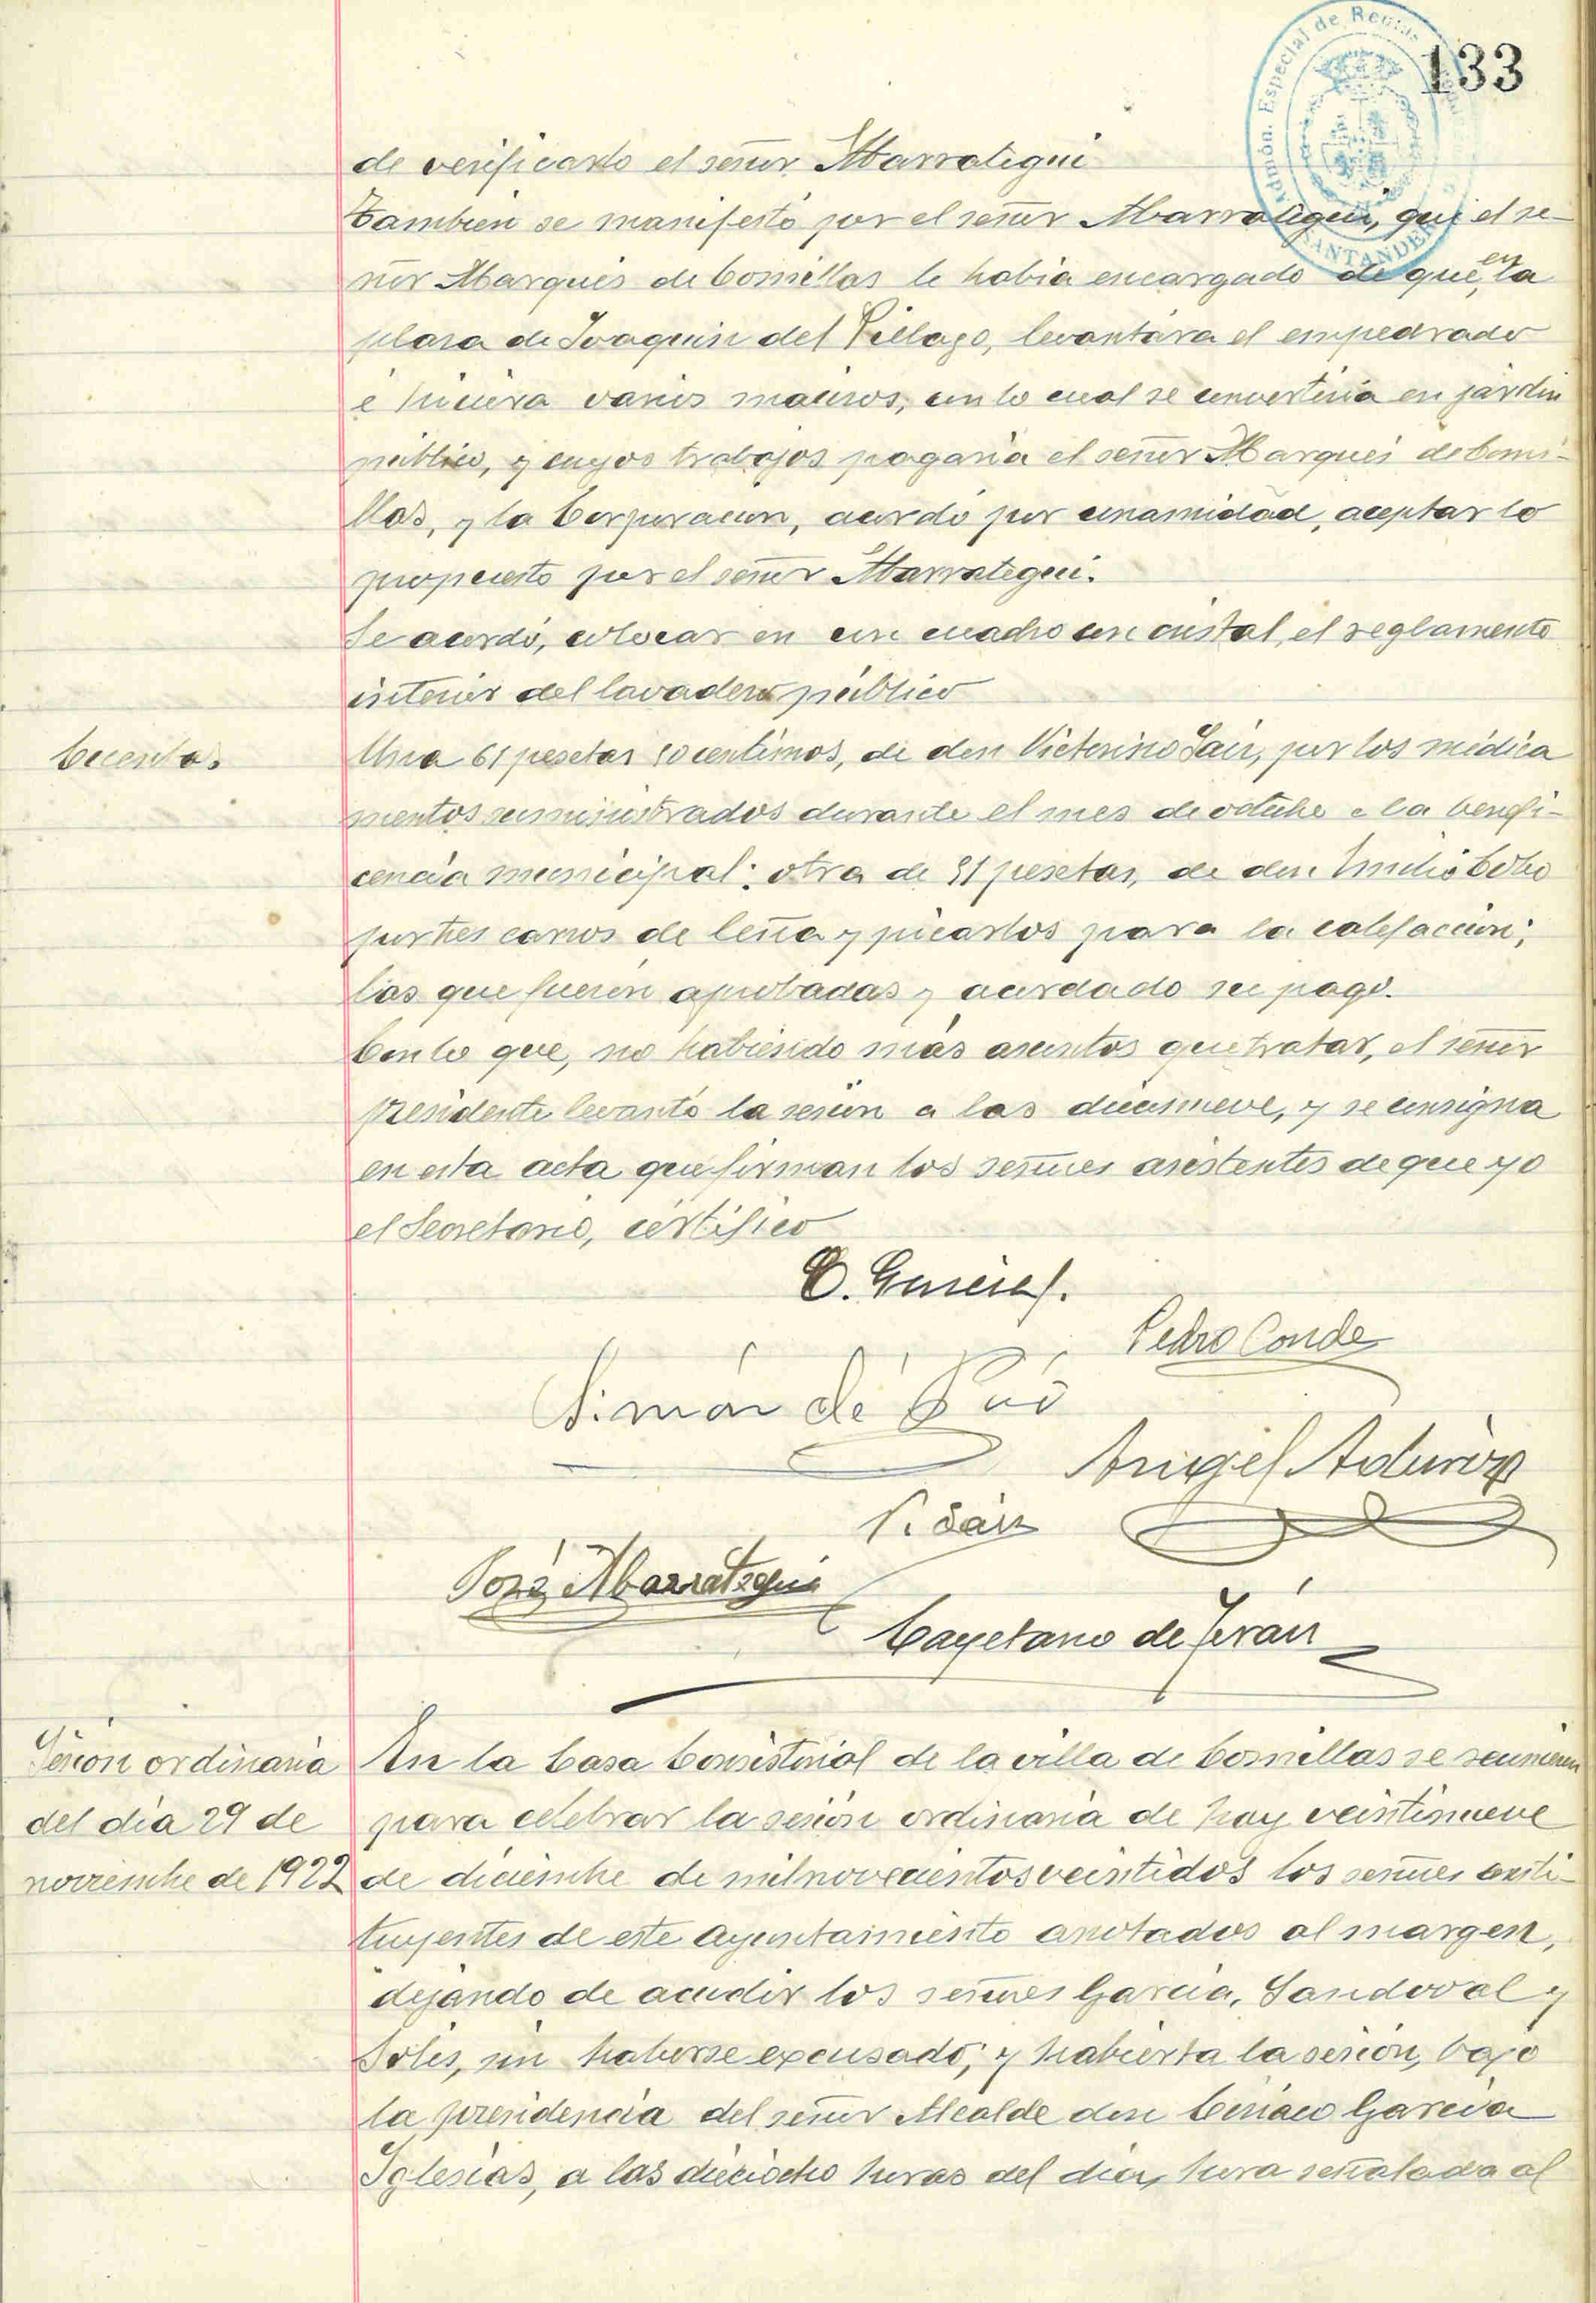 Admón. Especial de Rentas
SANTANDER
133
de verificarlo el señor Abarrategui
Tambien se manifestó por el señor Abarrategui, que el se-
ñor Marqués de Comillas le habia encargado de que, en la
plaza de Joaquin del Piélago, levantára el empedrado
é hiciera varios macizos, con lo cual se convertiria en jardin
público, y cuyos trabajos pagaria el señor Marqués de Comi-
llas, y la Corporación, acordó por unamidad, aceptar lo
propuesto por el señor Abarrategui.
Se acordó, colocar en un cuadro con cristal, el reglamento
interior del lavadero público
Cuentas
Una 61 pesetas 10 centimos, de don Victorino Saiz, por los médica
mentos suministrados durante el mes de octubre a la benefi-
cencia municipal; otra de 91 pesetas, de don Emilio Cobo
por tres carros de leña y picarlos para la calefacción;
las que fueron aprobadas y acordado su pago.
Con lo que, no habiendo más asuntos que tratar, el señor
presidente levantó la sesión a las diecinueve, y se consigna
en esta acta que firman los señores asistentes de que yo
el Secretario, certifico
Pedro Conde
Simón de
Angel Aduriz
V. Sáiz
José Abarrategui
Cayetano de Terán
Sesión ordinaria
del dia 29 de
noviembre de 1922
En la Casa Consistorial de la villa de Comillas se reunieron
para celebrar la sesión ordinaria de hoy veintinueve
de diciembre de mil novecientos veintidos los señores consti-
tuyentes de este Ayuntamiento anotados al margen,
dejando de acudir los señores Garcia, Sandoval y
Solis, sin haberse excusado; y habierta la sesión, bajo
la presidencia del señor Alcalde don Ciriaco Garcia
Iglesias, a las dieciocho horas del dia, hora señalada al